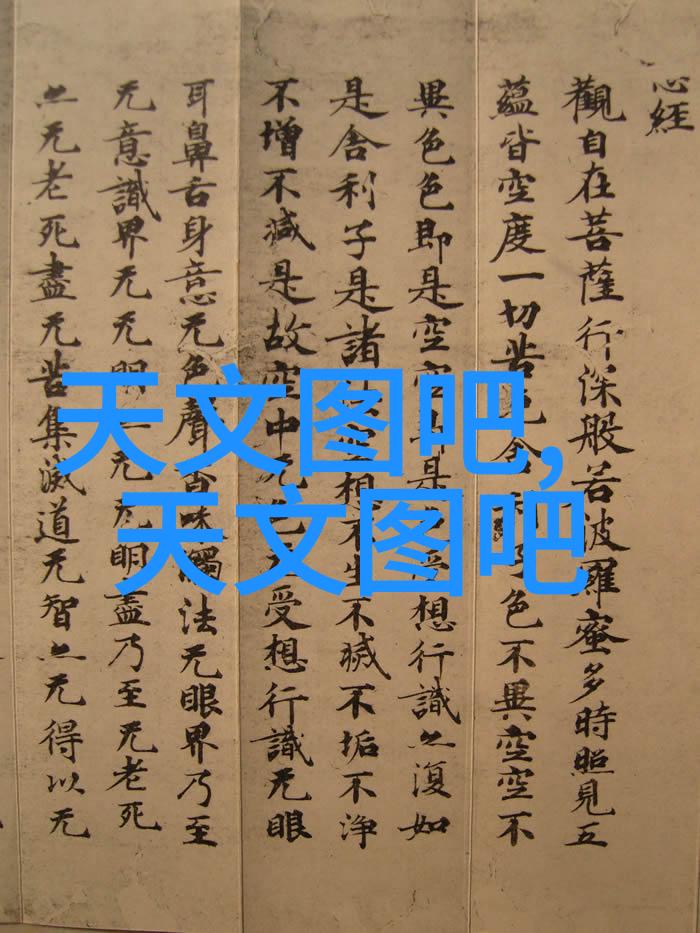 心經
觀自在菩薩行深般若波羅蜜多時照見五
蘊皆空度一切苦厄舍利子色不異空空不
異色色即是空空即是受想行識亦復如
是舍利子是諸空想不生不滅不垢不淨
不增不減是故空中无色无受想行識无眼
耳鼻舌身意无色聲香味觸法无眼界乃至
无意識界无无明亦无无明盡乃至无老死
亦无老死盡无苦集滅道无智亦无得以无
天文图吧,
天文图吧